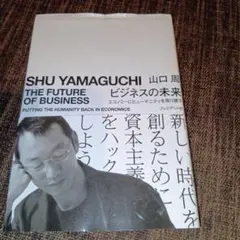 SHU YAMAGUCHI 山口 周
THE FUTURE
OF BUSINESS
ビジネスの未来
PUTTING THE HUMANITY BACK IN ECONOMICS
エコノミーにヒューマニティを取り戻す
新しい時代を
創るために
資本主義
をハック
しよう